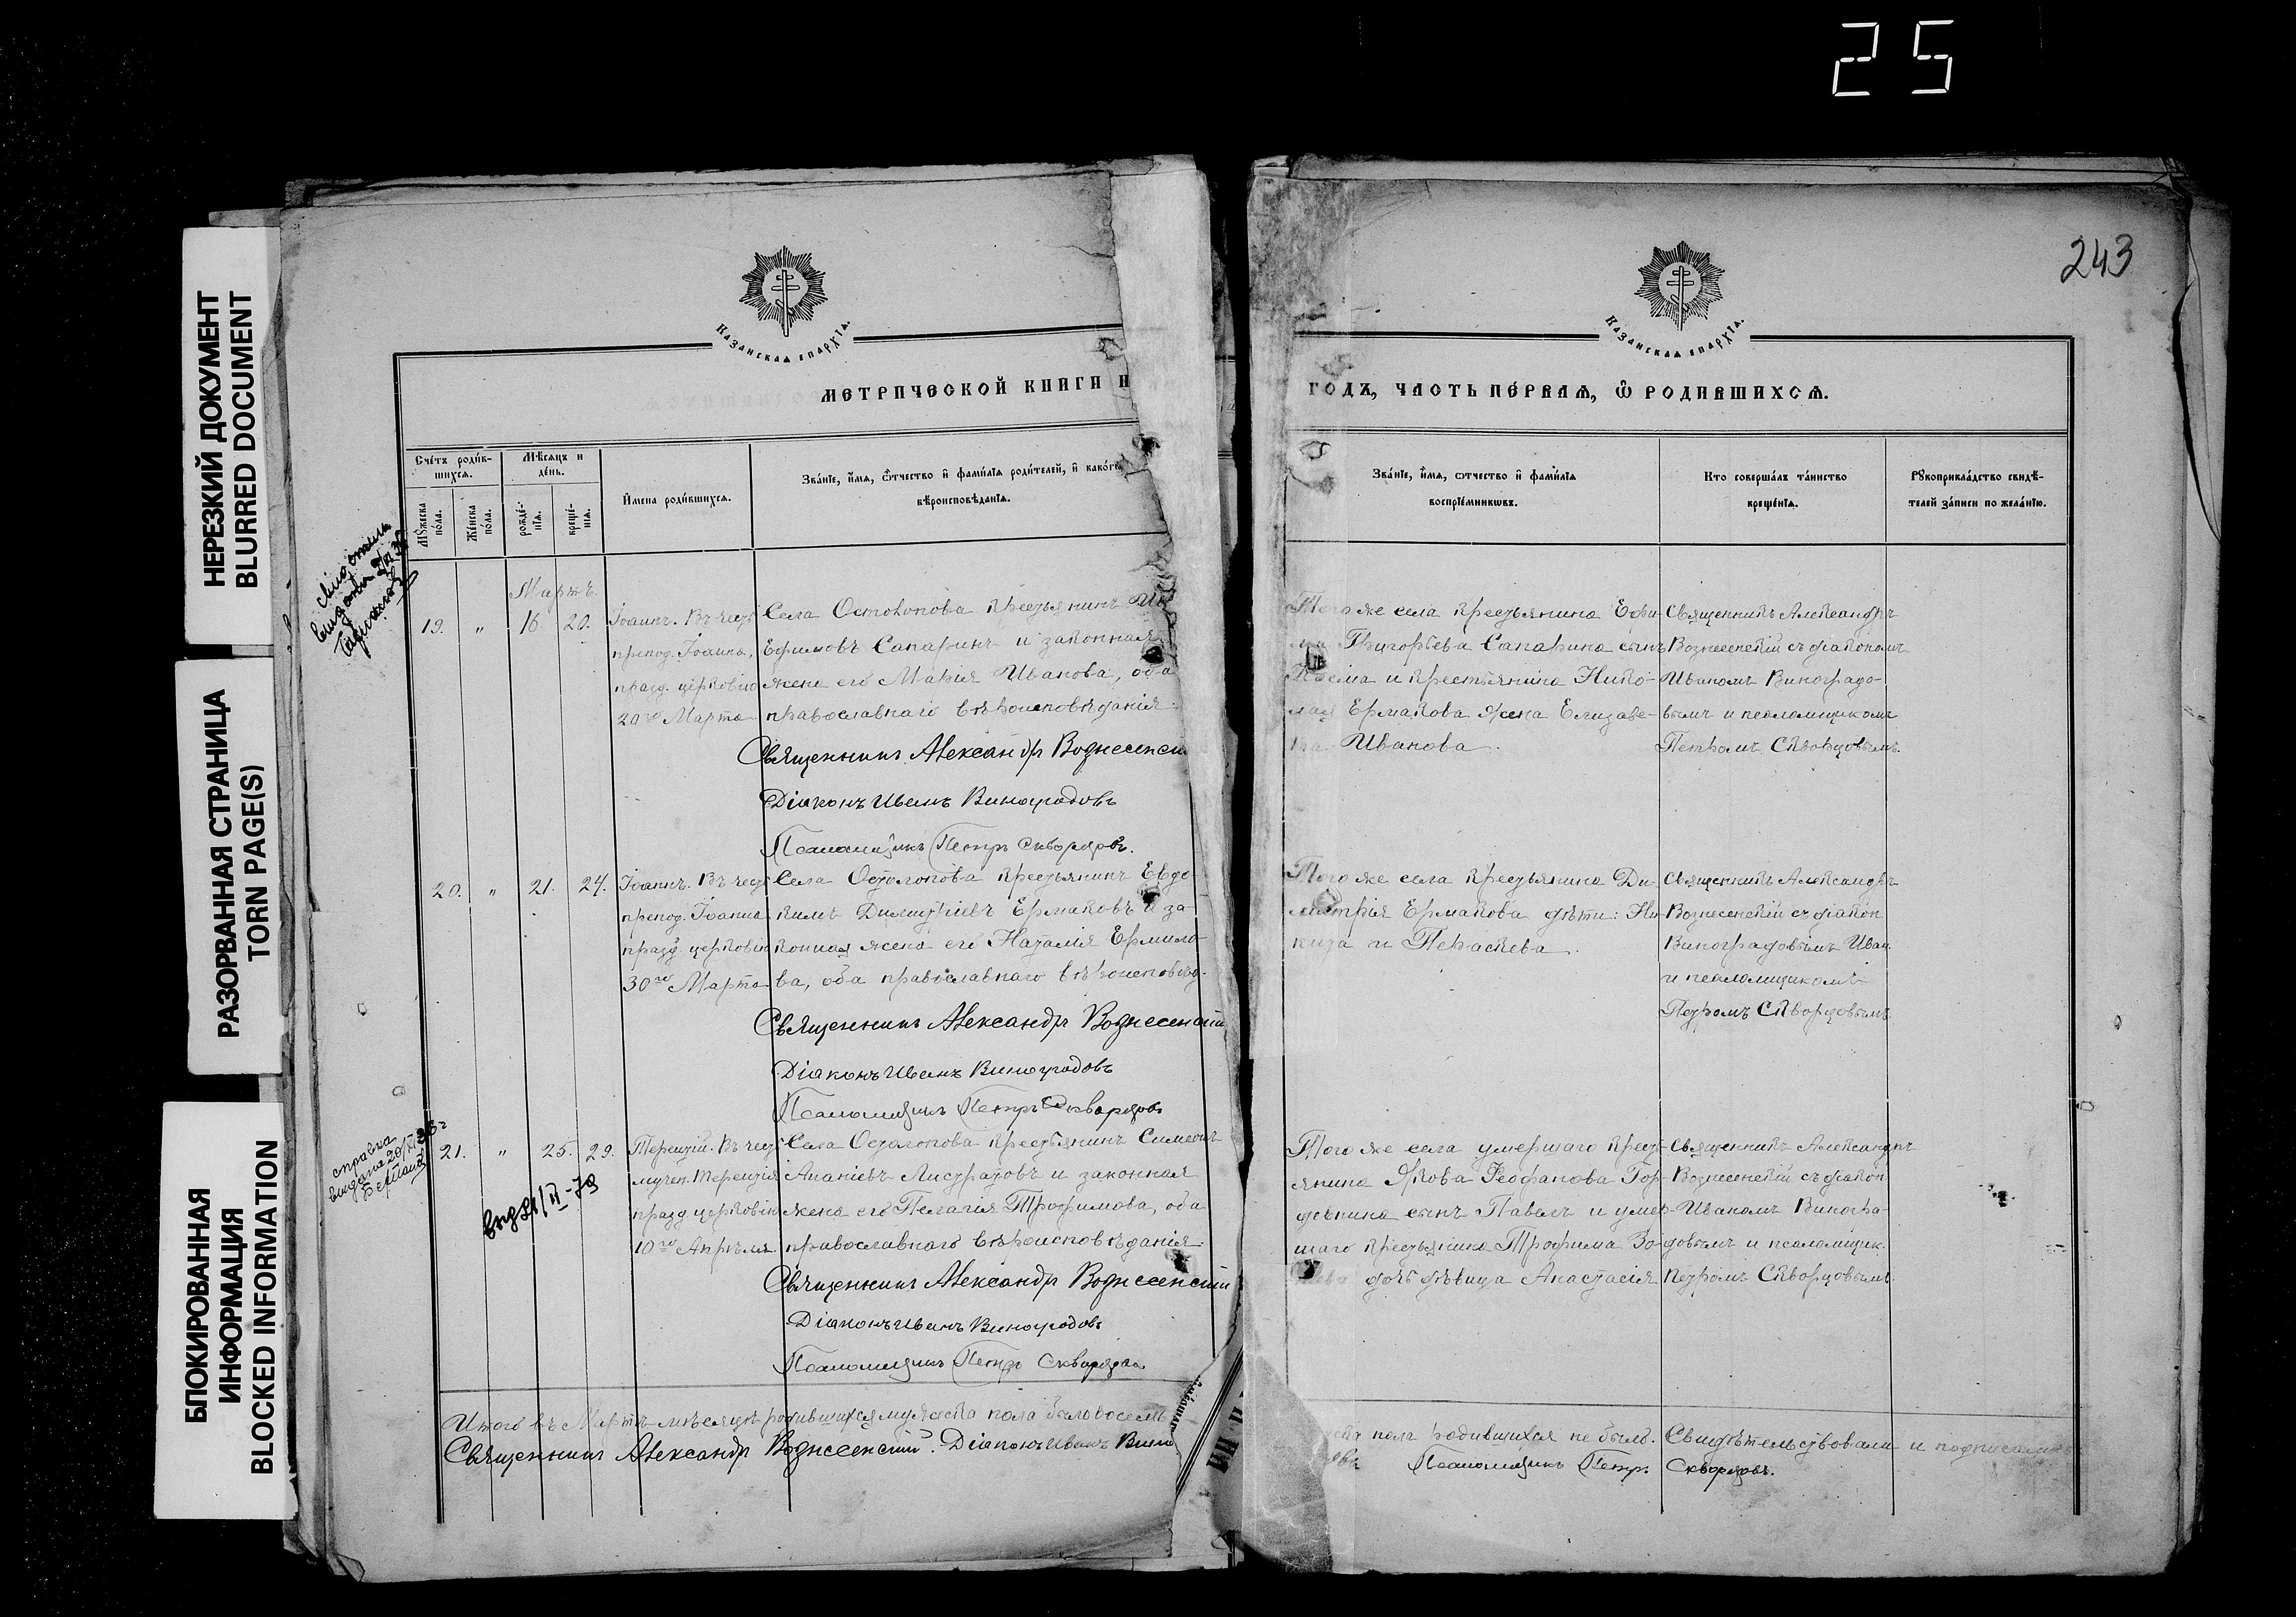 25
НЕРЕЗКИЙ ДОКУМЕНТ
BLURRED DOCUMENT
РАЗОРВАННАЯ СТРАНИЦА
TORN PAGE(S)
БЛОКИРОВАННАЯ
ИНФОРМАЦИЯ
BLOCKED INFORMATION
Казанская епархїа.
МЕТРИЧЕСКОЙ КНИГИ Н
Счетъ родив-
шихся.
Мѣсяцъ и
день.
Мужеска
пола.
Женска
пола.
рожде-
нїя.
креще-
нїя.
Имена родившихся.
Званїе, имя, ѿчество и фамилїя родителей, и какого
вѣроисповѣданїя.
Мартъ.
19. " 16. 20.
Іоаннъ. Въ чест
препод. Іоанна,
празд. церковію
20го Марта
Села Остолопова крестьянинъ
Ефимовъ Сапаринъ и законная
жена его Марія Иванова, оба
православнаго вѣроисповѣданія.
Священникъ Александръ Вознесенск
Діаконъ Иванъ Виноградовъ
Псаломщикъ Петръ Скворцовъ.
20. " 21. 24.
Іоаннъ. Въ чест
препод. Іоанна
празд. церковію
30го Марта
Села Остолопова крестьянинъ Евдо-
кимъ Димитріевъ Ермаковъ и за-
конная жена его Наталія Ермило-
ва, оба православнаго вѣроисповѣд.
Священникъ Александръ Вознесенскій
Діаконъ Иванъ Виноградовъ
Псаломщикъ Петръ Скворцовъ
справка
выдана
21. " 25. 29.
Терентій. Въ чест
мучен. Терентія
празд. церковію
10го Апрѣля
Села Остолопова крестьянинъ Симеонъ
Ананіевъ Листратовъ и законная
жена его Пелагія Трофимова, оба
православнаго вѣроисповѣданія.
Священникъ Александръ Вознесенскій
Діаконъ Иванъ Виноградовъ
Псаломщикъ Петръ Скворцовъ
Итого въ Мартѣ мѣсяцѣ родившихся мужеска пола было восемь
Священникъ Александръ Вознесенскій. Діаконъ Иванъ Вино
243
Казанская епархїа.
ГОДЪ, ЧАСТЬ ПЕРВАЯ, Ѡ РОДИВШИХСЯ.
Званїе, имя, ѿчество и фамилїя
воспрїемникωвъ.
Кто совершалъ таинство
крещенїя.
Рукоприкладство свидѣ-
телей записи по желанїю.
Того же села крестьянина Ефи-
ма Григорьева Сапарина сынъ
Косма и крестьянина Нико-
лая Ермакова жена Елизаве-
та Иванова.
Священникъ Александръ
Вознесенскій съ діакономъ
Иваномъ Виноградо-
вымъ и псаломщикомъ
Петромъ Скворцовымъ.
Того же села крестьянина Ди-
митрія Ермакова дѣти: Ни-
кита и Параскева.
Священникъ Александръ
Вознесенскій съ діакон
Виноградовымъ Иван
и псаломщикомъ
Петромъ Скворцовымъ.
Того же села умершаго кресть-
янина Якова Феофанова Гор-
дѣвнина сынъ Павелъ и умер-
шаго крестьянина Трофима Зо-
дочь дѣвица Анастасія.
Священникъ Александръ
Вознесенскій съ діакон
Иваномъ Виногра-
довымъ и псаломщик.
Петромъ Скворцовымъ.
пола родившихся не было. Свидѣтельствовали и подписали
Псаломщикъ Петръ Скворцовъ.